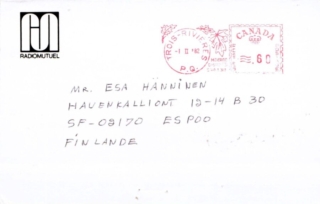 RADIOMUTUEL
TROIS-RIVIERES
P.Q.
CANADA
.60
MR. ESA HÄNNINEN
HAUENKALLIONT 12-14 B 30
SF-02170 ESPOO
FINLANDE